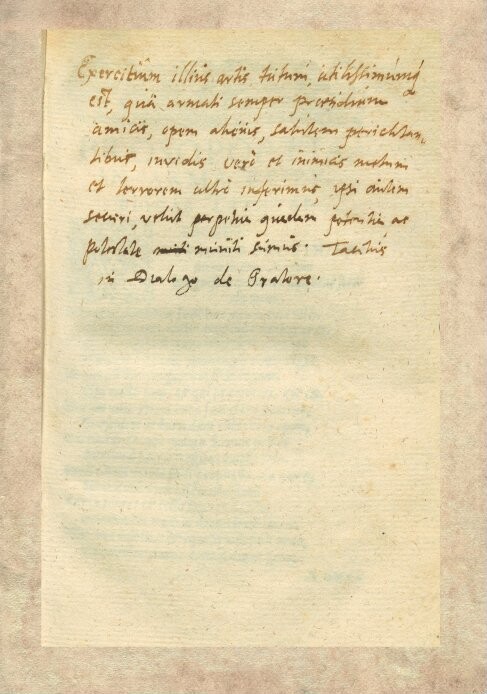 Exercitium illius artis tutum, utilissimumq
est, quâ armati semper præsidium
amicis, opem alienis, salutem periclitan-
tibus, invidis verò et inimicis metum
et terrorem ultrò inferimus, ipsi autem
securi, velut perpetua quadam potentia, ac
potestate muniti simus. Tacitus
in Dialogo de Oratore.